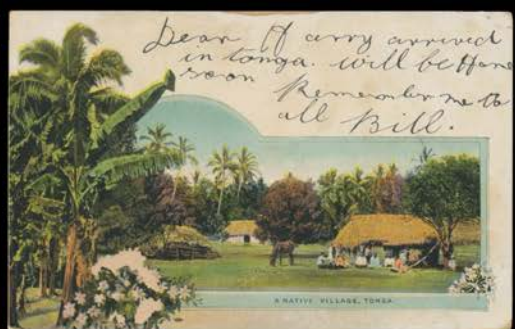 Dear Harry arrived
in tonga. will be Home
soon
Remember me to
all Bill.
A NATIVE VILLAGE, TONGA.